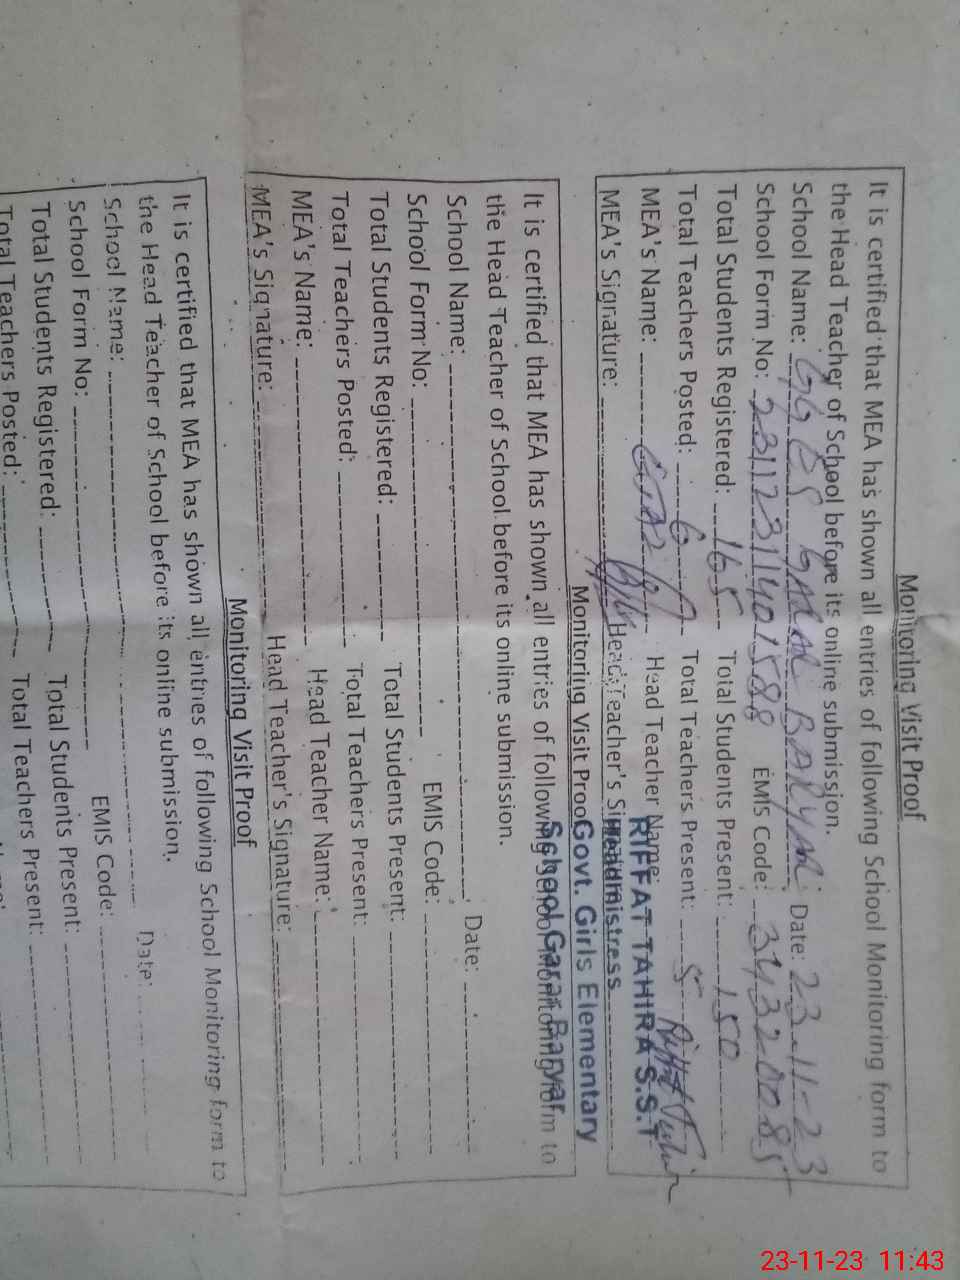 Monitoring Visit Proof
It is certified that MEA has shown all entries of following School Monitoring form to
the Head Teacher of School before its online submission.
School Name: GGES GARAR BARYAR Date: 23-11-23
School Form No: 23112311401588 EMIS Code: 34320085
Total Students Registered: 165 Total Students Present: 150
Total Teachers Posted: 6 Total Teachers Present: 5
MEA's Name: Head Teacher Name:
MEA's Signature: Head Teacher's Signature
RIFFAT TAHIRA S.S.T
Headmistress
Govt. Girls Elementary
School Garar Baryar
Monitoring Visit Proof
It is certified that MEA has shown all entries of following School Monitoring form to
the Head Teacher of School before its online submission.
School Name: Date:
School Form No: EMIS Code:
Total Students Registered: Total Students Present:
Total Teachers Posted: Total Teachers Present:
MEA's Name: Head Teacher Name:
MEA's Signature: Head Teacher's Signature:
Monitoring Visit Proof
It is certified that MEA has shown all entries of following School Monitoring form to
the Head Teacher of School before its online submission.
School Name: Date:
School Form No: EMIS Code:
Total Students Registered: Total Students Present:
Total Teachers Posted: Total Teachers Present:
23-11-23 11:43